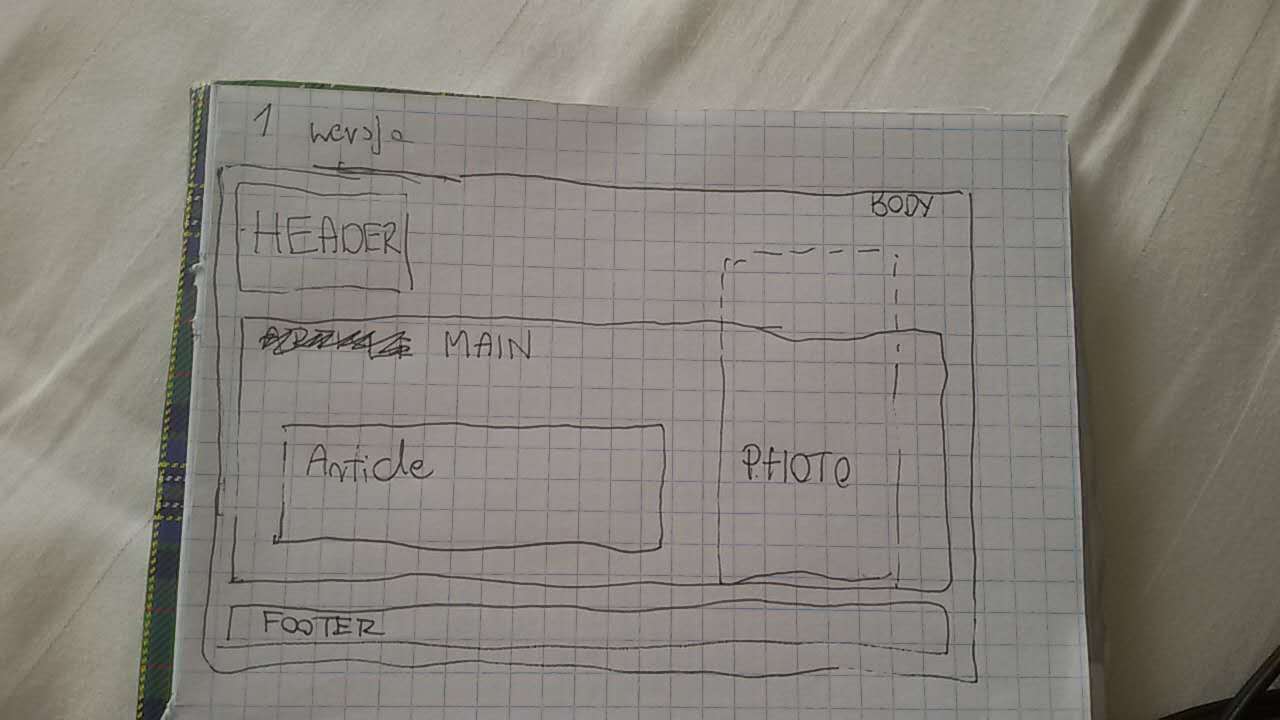 1 wersja
BODY
HEADER
MAIN
Article
PHOTO
FOOTER